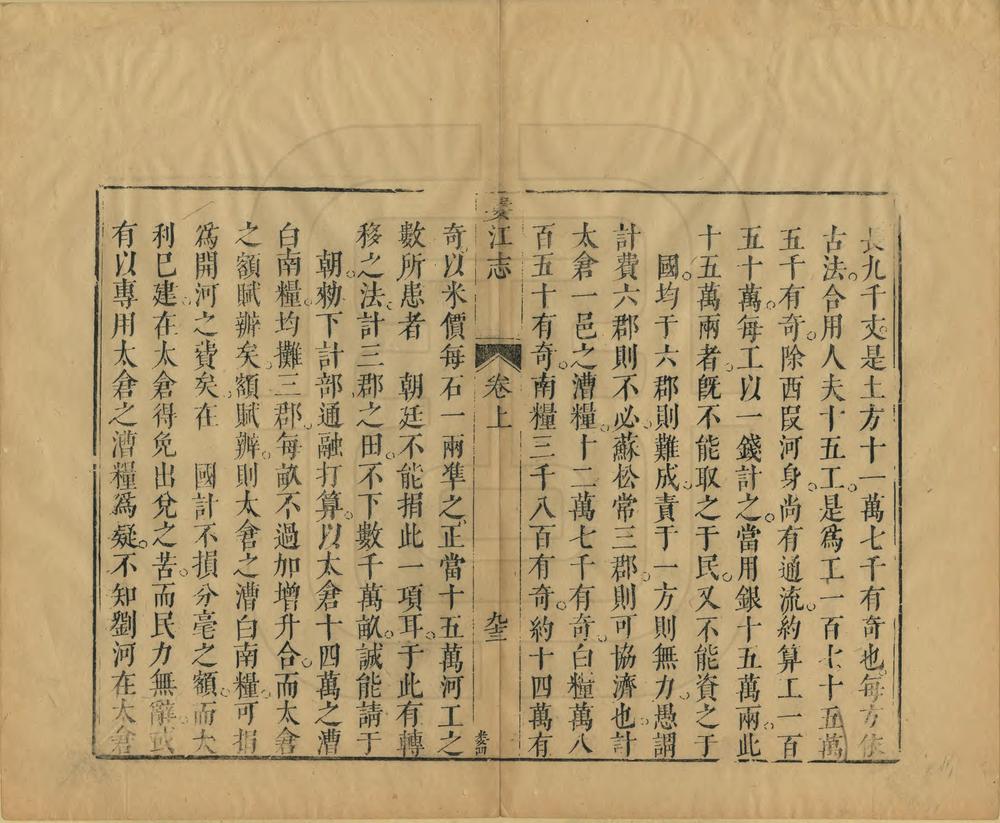 長九千丈是土方十一萬七千有奇也每方依
古法合用人夫十五工是爲工一百七十五萬
五千有奇除西段河身尚有通流約算工一百
五十萬每工以一錢計之當用銀十五萬兩此
十五萬兩者旣不能取之于民又不能資之于
國均于六郡則難成責于一方則無力愚謂
計費六郡則不必蘇松常三郡則可協濟也計
太倉一邑之漕糧十二萬七千有奇白糧萬八
百五十有奇南糧三千八百有奇約十四萬有
婁江志
卷上
婁四
奇以米價每石一兩準之正當十五萬河工之
數所患者 朝廷不能捐此一項耳于此有轉
移之法計三郡之田不下數千萬畝誠能請于
朝勑下計部通融打算以太倉十四萬之漕
白南糧均攤三郡每畝不過加增升合而太倉
之額賦辦矣額賦辦則太倉之漕白南糧可捐
爲開河之費矣在 國計不損分毫之額而大
利已建在太倉得免出兌之苦而民力無辭或
有以專用太倉之漕糧爲疑不知劉河在太倉